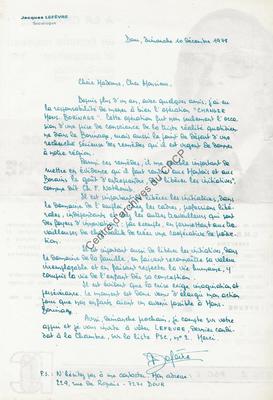 Jacques LEFÈVRE
Sociologue
Dour, Dimanche 10 Décembre 1978
Chère Madame, Cher Monsieur,
Depuis plus d'un an, avec quelques amis, j'ai eu
la responsabilité de mener à bien l'opération "CHANGER
MONS-BORINAGE". Cette opération fut non seulement l'occa-
sion d'une prise de conscience de la triste réalité quotidien-
ne dans le Borinage, mais aussi le point de départ d'une
recherche sérieuse des remèdes qu'il est urgent de donner
à notre région.
Parmi ces remèdes, il me semble important de
mettre en évidence qu'il faut rendre aux Montois et aux
Borains le goût d'entreprendre, "libérer les initiatives",
comme dit Ch. F. Nothomb.
Il est important de libérer les initiatives, dans
le domaine de l'emploi, pour les cadres, professions libé-
rales, indépendants et tous les autres travailleurs qui sont
des foyers d'innovation, j'ai songé, en permettant aux
travailleurs de choisir de créer une coopérative de produc-
tion.
Il est important aussi de libérer les initiatives, dans
le domaine de la famille, en faisant reconnaître sa valeur
irremplaçable et en faisant respecter la vie humaine, y
compris la vie de l'enfant dès sa conception.
Il est évident que la crise exige imagination et
persévérance. Le moment est donc venu d'élargir mon action
pour que nos enfants aient un avenir possible à Mons-
Borinage.
Aussi, dimanche prochain, je compte sur votre
appui et je vous invite à voter LEFEVRE, dernier candi-
dat à la Chambre, sur la liste PSC, n° 2. Merci.
J. Lefèvre
P.S.: N'hésitez pas à me contacter. Mon adresse:
229, rue de Ropaix - 7271 DOUR
Centre d'Archives du CPCP